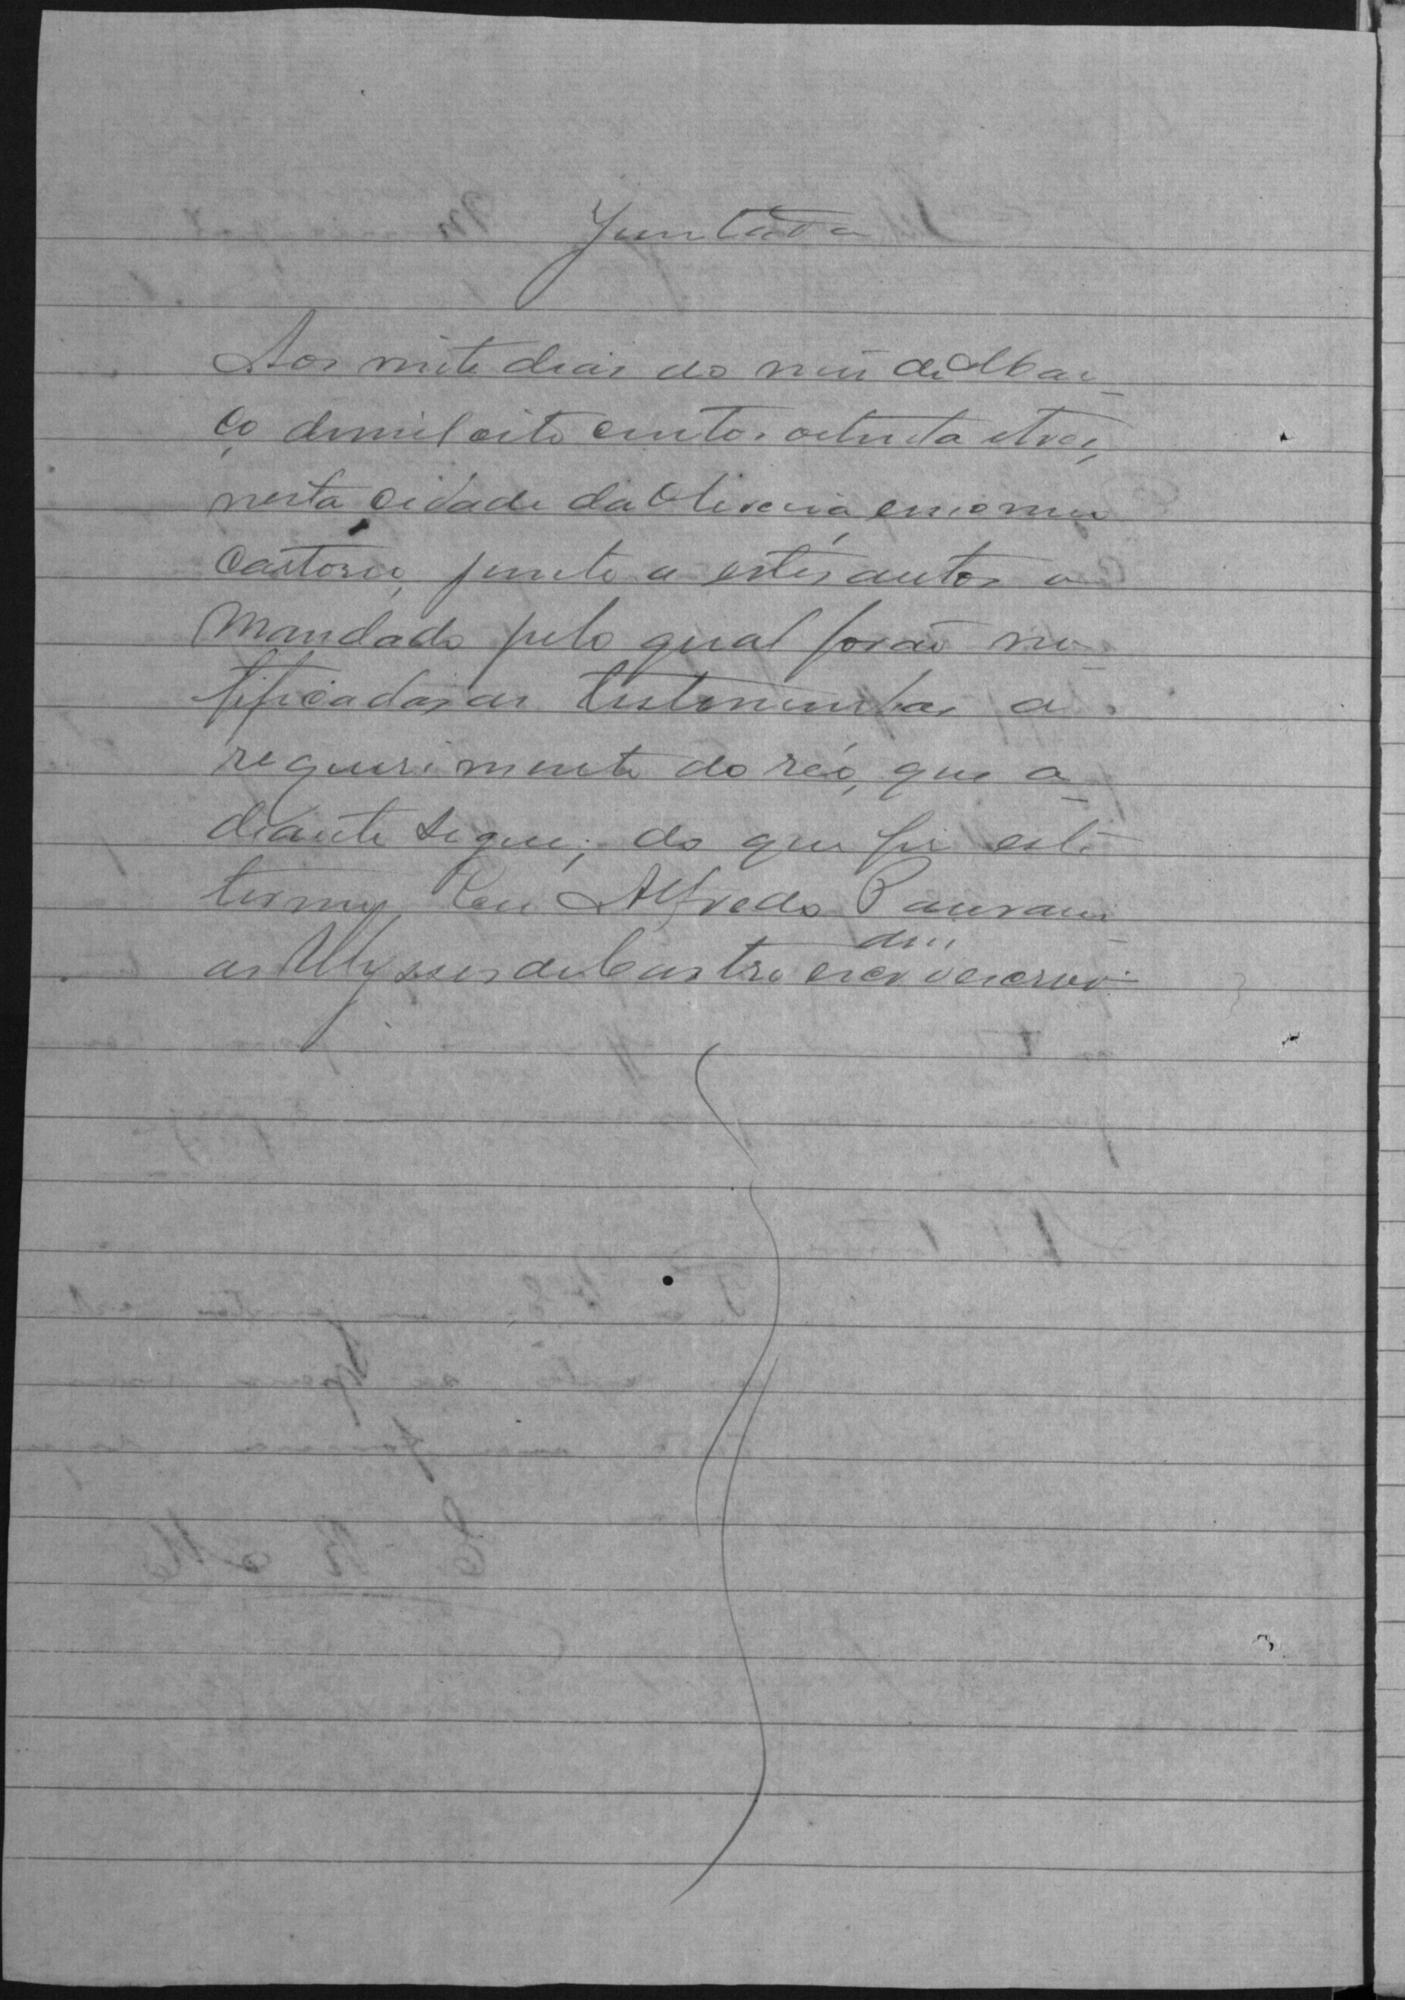 Juntada
Aos vinte dias do mez de Mar-
ço de mil oito centos oitenta e tres,
nesta cidade da Oliveira, em o meu
cartorio, junto a estes autos o
Mandado pelo qual forão no-
tificadas as testemunhas a
requerimento do réo, que a-
diante segue; do que fiz este
termo. Eu Alfredo Pausani-
as Ulysses de Castro escr